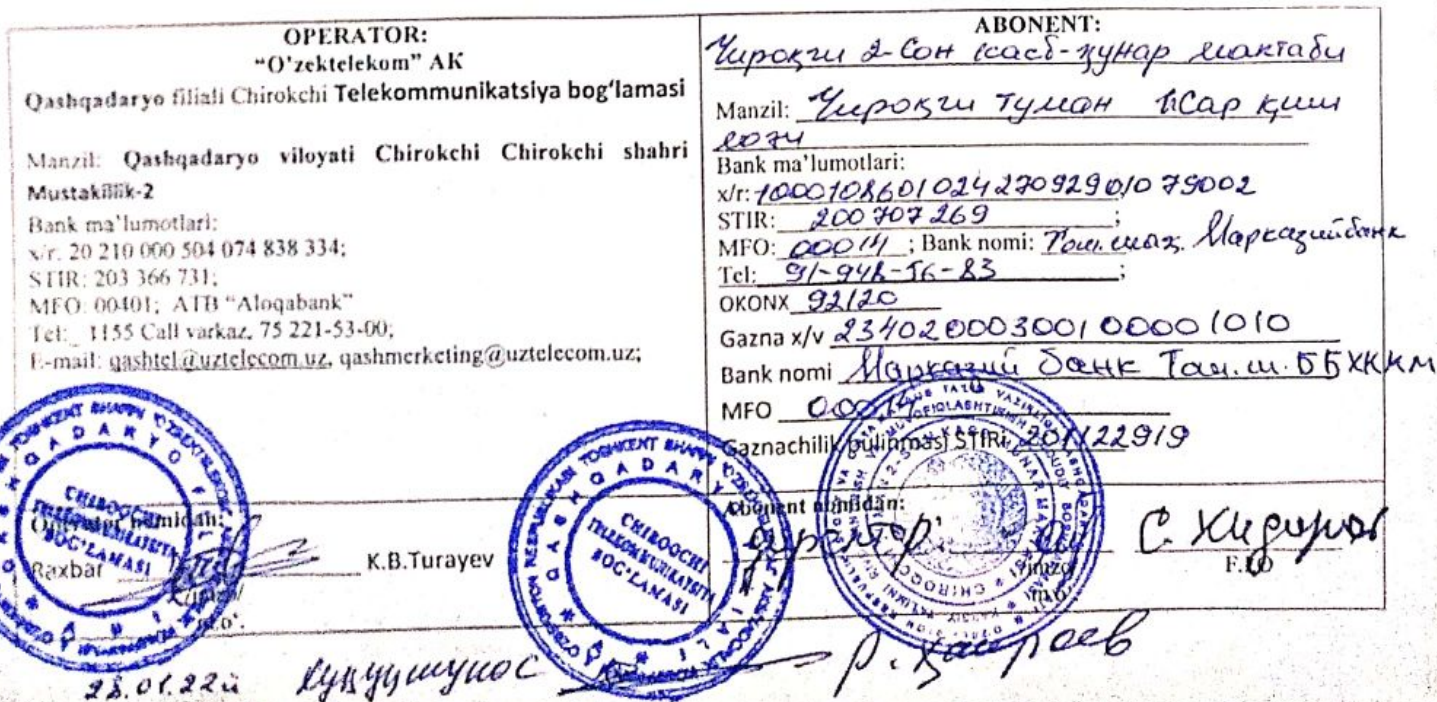 OPERATOR:
“O'zektelekom” AK
Qashqadaryo filiali Chirokchi Telekommunikatsiya bog‘lamasi
Manzil: Qashqadaryo viloyati Chirokchi Chirokchi shahri
Mustakillik-2
Bank ma'lumotlari:
x/r. 20 210 000 504 074 838 334;
STIR: 203 366 731;
MFO: 00401; ATB “Aloqabank”
Tel:_ 1155 Call varkaz, 75 221-53-00;
E-mail: qashtel@uztelecom.uz, qashmerketing@uztelecom.uz;
Operator nomidan:
Raxbar K.B.Turayev
/imzo/
m.o'.
ABONENT:
Чироқчи 2-Сон касб-ҳунар мактаби
Manzil: Чироқчи туман қиш
лоғи
Bank ma'lumotlari:
x/r: 100010860102427092901079002
STIR: 200707269;
MFO: 00014; Bank nomi: Тош.шаҳ. Марказийбанк
Tel: 91-948-56-83;
OKONX 92120
Gazna x/v 23402000300100001010
Bank nomi Марказий банк Тош.ш. ББХККМ
MFO 00014
Gaznachilik bulinmasi STIRi 201122919
Abonent nomidan:
директор С. Хидиров
/imzo/ F.I.O
m.o'.
CHIROQCHI
TELEKOMMUNIKATSIYA
BOG'LAMASI
CHIROQCHI
TELEKOMMUNIKATSIYA
BOG'LAMASI
28.01.22й Ҳуқуқшунос Р.